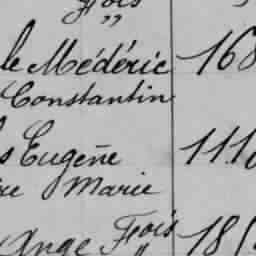 Fois
„
le Médéric 168
Constantin
s Eugène 111
re Marie
Ange Fois 18